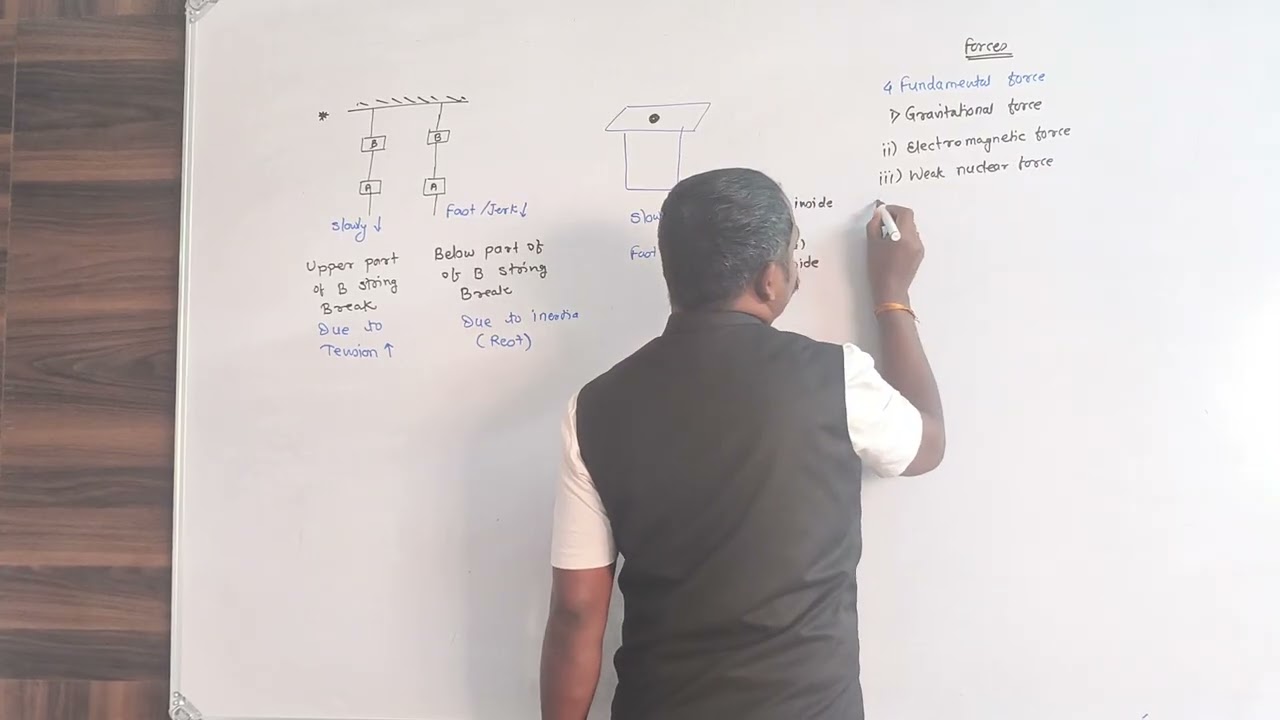 Forces
4 Fundamental force
i) Gravitational force
ii) Electromagnetic force
iii) Weak nuclear force
*
B
B
A
A
Slowly ↓
Fast/Jerk ↓
Upper part
of B string
Break
Due to
Tension ↑
Below part of
of B string
Break
Due to inertia
(Rest)
inside
Fast